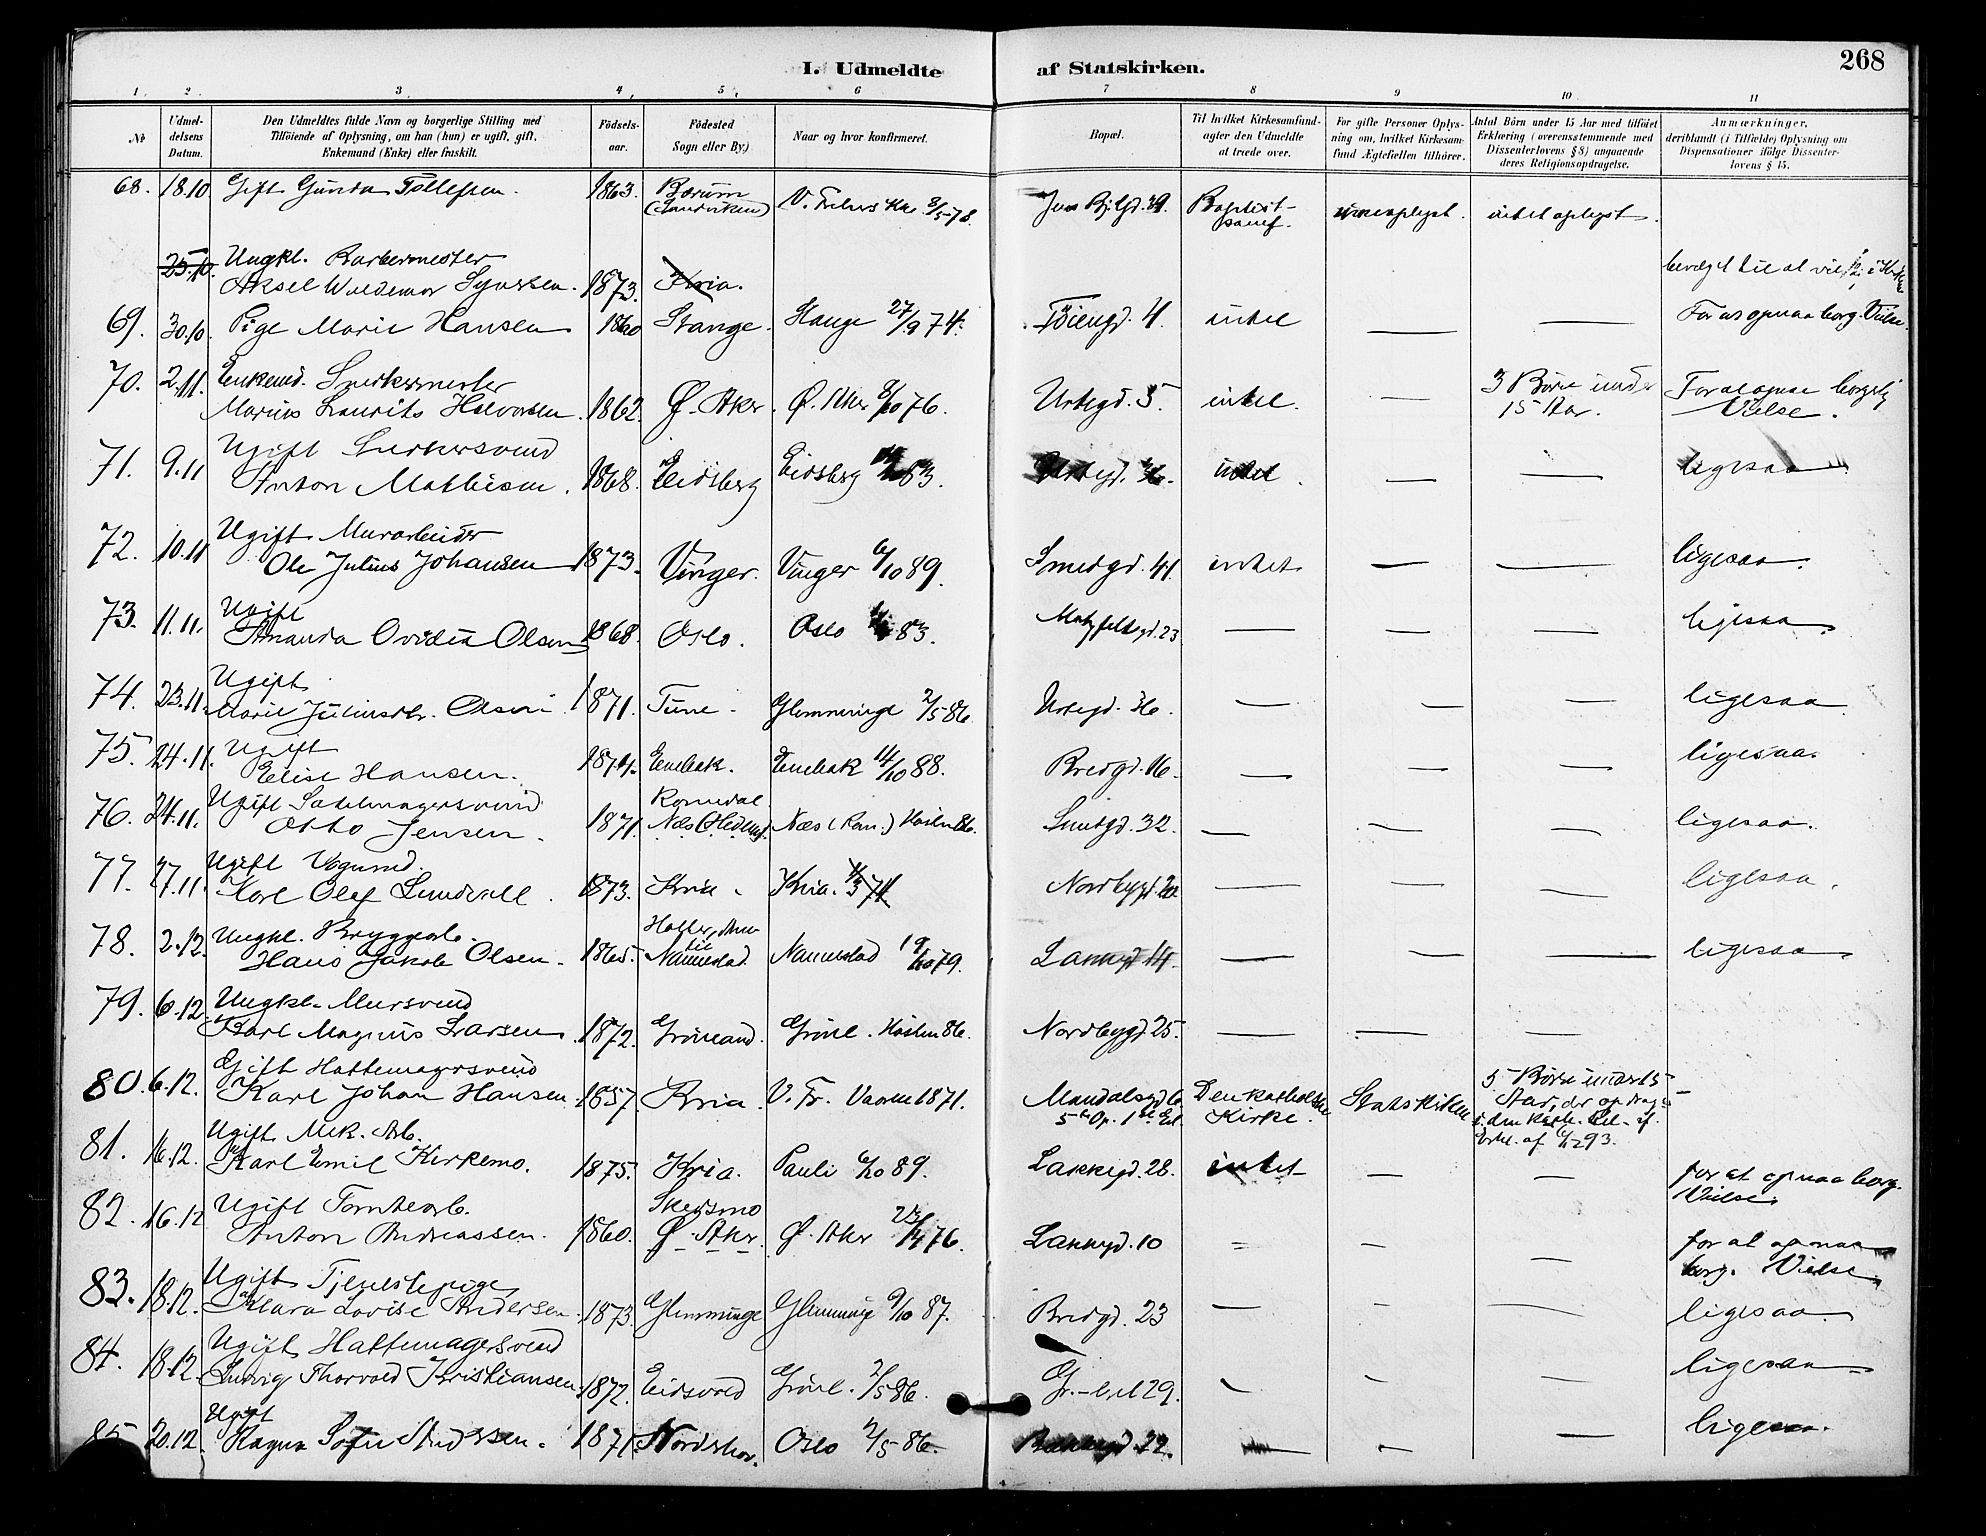 I. Udmeldte af Statskirken.
268
1. 2. 3. 4. 5. 6 7 8 9 10 11
№
Udmeldelsens Datum.
Den Udmeldtes fulde Navn og borgerlige Stilling med
Tilföiende af Oplysning, om han (hun) er ugift, gift,
Enkemand (Enke) eller fraskilt.
Födselsaar.
Födested
Sogn eller By.)
Naar og hvor konfirmeret.
Bopæl.
Til hvilket Kirkesamfund-
agter den Udmeldte
at træde over.
For gifte Personer Oplys-
ning om, hvilket Kirkesam-
fund Ægtefællen tilhörer.
Antal Börn under 15 Aar med tilföiet
Erklæring (overensstemmende med
Dissenterlovens § 8) angaaende
deres Religionsopdragelse.
Anmærkninger,
deriblandt (i Tilfælde) Oplysning om
Dispensationer ifölge Dissenter-
lovens § 15.
68. 18.10 Gift Gunda Tollefsen. 1863. Bærum (Sandviken) 78. Baptist-samf. intet oplyst.
25.10. Ungkl. Barbermester
Aksel Waldemar 1873. Kria.
69. 30.10. Pige Marie Hansen 1860 Stange. Hauge 27/9 74. Töiengd. 4. intet — — For at opnaa borg. Vielse.
70. 2.11. Enkemd. Snekkermester
Marius Laurits Halvorsen. 1862. Ø. Aker. Ø. Aker 8/10 76. Urtegd. 5. intet. — 3 Börn under 15 Aar. For at opnaa borgelig Vielse.
71. 9.11 Ugift Snekkersvend
Anton Mathisen. 1868. Eidsberg Eidsberg 83. Urtegd. 36. intet. — — ligesaa.
72. 10.11 Ugift Murarbeider
Ole Julius Johansen 1873. Vinger. Vinger 6/10 89. Smedgd. 41. intet — — ligesaa.
73. 11.11. Ugift
Amanda Ovidia Olsen 1868. Oslo. Oslo 83. 23 — — — ligesaa.
74. 23.11. Ugift
Marie Olsen. 1871. Tune. Glemminge 2/5 86. Urtegd. 36. — — — ligesaa.
75. 24.11. Ugift
Elise Hansen. 1874. Enebak. Enebak 14/10 88. Bredgd. 16. — — — ligesaa.
76. 24.11. Ugift Sadelmagersvend
Otto Jensen. 1871. Romedal Næs (Hedem.) Næs (Rom.) Hösten 86. Smedgd. 32. — — — ligesaa.
77. 27.11. Ugift Vognmd.
Karl Olaf Lundvall. 1873. Kria. Kria. Nordbygd. 20. — — — ligesaa.
78. 2.12. Ungkl. Bryggearb.
Hans Jakob Olsen. 1865. Nannestad. Nannestad 19/10 79. Lakkegd. 14. — — — ligesaa.
79. 6.12. Ungkl. Mursvend
Karl Magnus Larsen. 1872. Grönland. Grönl. Hösten 86. Nordbygd. 25. — — —
80. 6.12. Gift Hattemagersvend
Karl Johan Hansen. 1857. Kria. V. Fr. Vaaren 1871. Mandalsgd. 6 5te Op. 1ste Et. Den katholske Kirke. Statskirken 5 Börn under 15 Aar, der opdrages i den kath. Rel. af 93.
81. 16.12. Ugift Mek. Arb.
Karl Emil Kirkemo. 1875. Kria. Pauli 6/10 89. Lakkegd. 28. intet — — for at opnaa borg. Vielse.
82. 16.12 Ugift Tomtearb.
Anton Andreassen. 1860. Skedsmo Ø. Aker. Ø. Aker 76. Lakkegd. 10 = — — for at opnaa borg. Vielse.
83. 18.12. Ugift Tjenestepige
Klara Lovise Andersen. 1873. Glemminge Glemminge 9/10 87. Bredgd. 23 — — — ligesaa.
84. 18.12. Ugift Hattemagersvend
Ludvig Thorvald Kristiansen. 1872. Eidsvold Grönl. 2/5 86. 29. — — — ligesaa
85. 20.12. Ugift
Ragna Sofie Andersen. 1871. Nordstrand. Oslo 2/5 86. 22. — — — ligesaa.